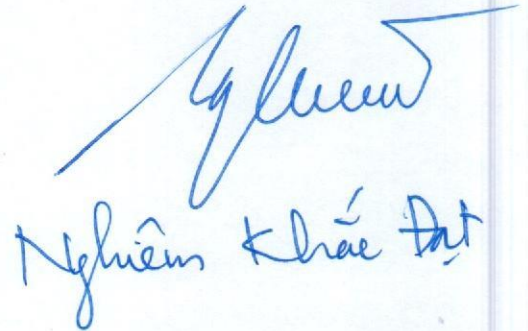 Nghiêm Khắc Đạt